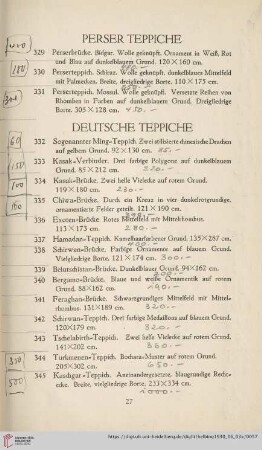 PERSER TEPPICHE
400
329 Perserbrücke. Wolle geknüpft. Ornament in Weiß, Rot
und Blau auf dunkelblauem Grund. 120×160 cm.
180
330 Perserteppich. Schiras. Wolle geknüpft, dunkelblaues Mittelfeld
mit Palmecken. Breite, dreigliedrige Borte. 110×175 cm.
300
331 Perserteppich. Mossul. Wolle geknüpft. Versetzte Reihen von
Rhomben in Farben auf dunkelblauem Grund. Dreigliedrige
Borte. 305×128 cm. 450.-
DEUTSCHE TEPPICHE
60
332 Sogenannter Ming-Teppich. Zwei stilisierte chinesische Drachen
auf gelbem Grund. 92×130 cm.
150
333 Kasak-Verbinder. Drei farbige Polygone auf dunkelblauem
Grund. 85×212 cm. 220.-
100
334 Kasak-Brücke. Zwei helle Vielecke auf rotem Grund.
119×180 cm. 230.-
100
335 Chiwa-Brücke. Durch ein Kreuz in vier dunkelrotgrundige,
ornamentierte Felder geteilt. 121×190 cm.
336 Brücke. Rotes Mittelfeld mit Mittelrhombus.
113×173 cm 280.-
337 Hamadan-Teppich. Kamelhaarfarbener Grund. 135×287 cm
338 Schirwan-Brücke. Farbige Ornamente auf blauem Grund.
Vielgliedrige Borte. 121×174 cm 300.-
339 Belutschistan-Brücke. Dunkelblauer Grund. 94×162 cm
340 Bergamo-Brücke. Blaue und weiße Ornamentik auf rotem
Grund. 88×162 cm
341 Feraghan-Brücke. Schwarzgrundiges Mittelfeld mit Mittel-
rhombus. 131×189 cm 320.-
342 Schirwan-Teppich. Drei farbige Medaillons auf blauem Grund.
120×179 cm 320.-
343 Teppich. Zwei helle Vielecke auf rotem Grund.
141×202 cm 380.-
350
344 Turkmenen-Teppich. Bochara-Muster auf rotem Grund.
205×302 cm 650.-
500
345 Kaschgar-Teppich. Aneinandergesetzte, blaugrundige Recht-
ecke. Breite, vielgliedrige Borte. 231×334 cm
1000.-
27